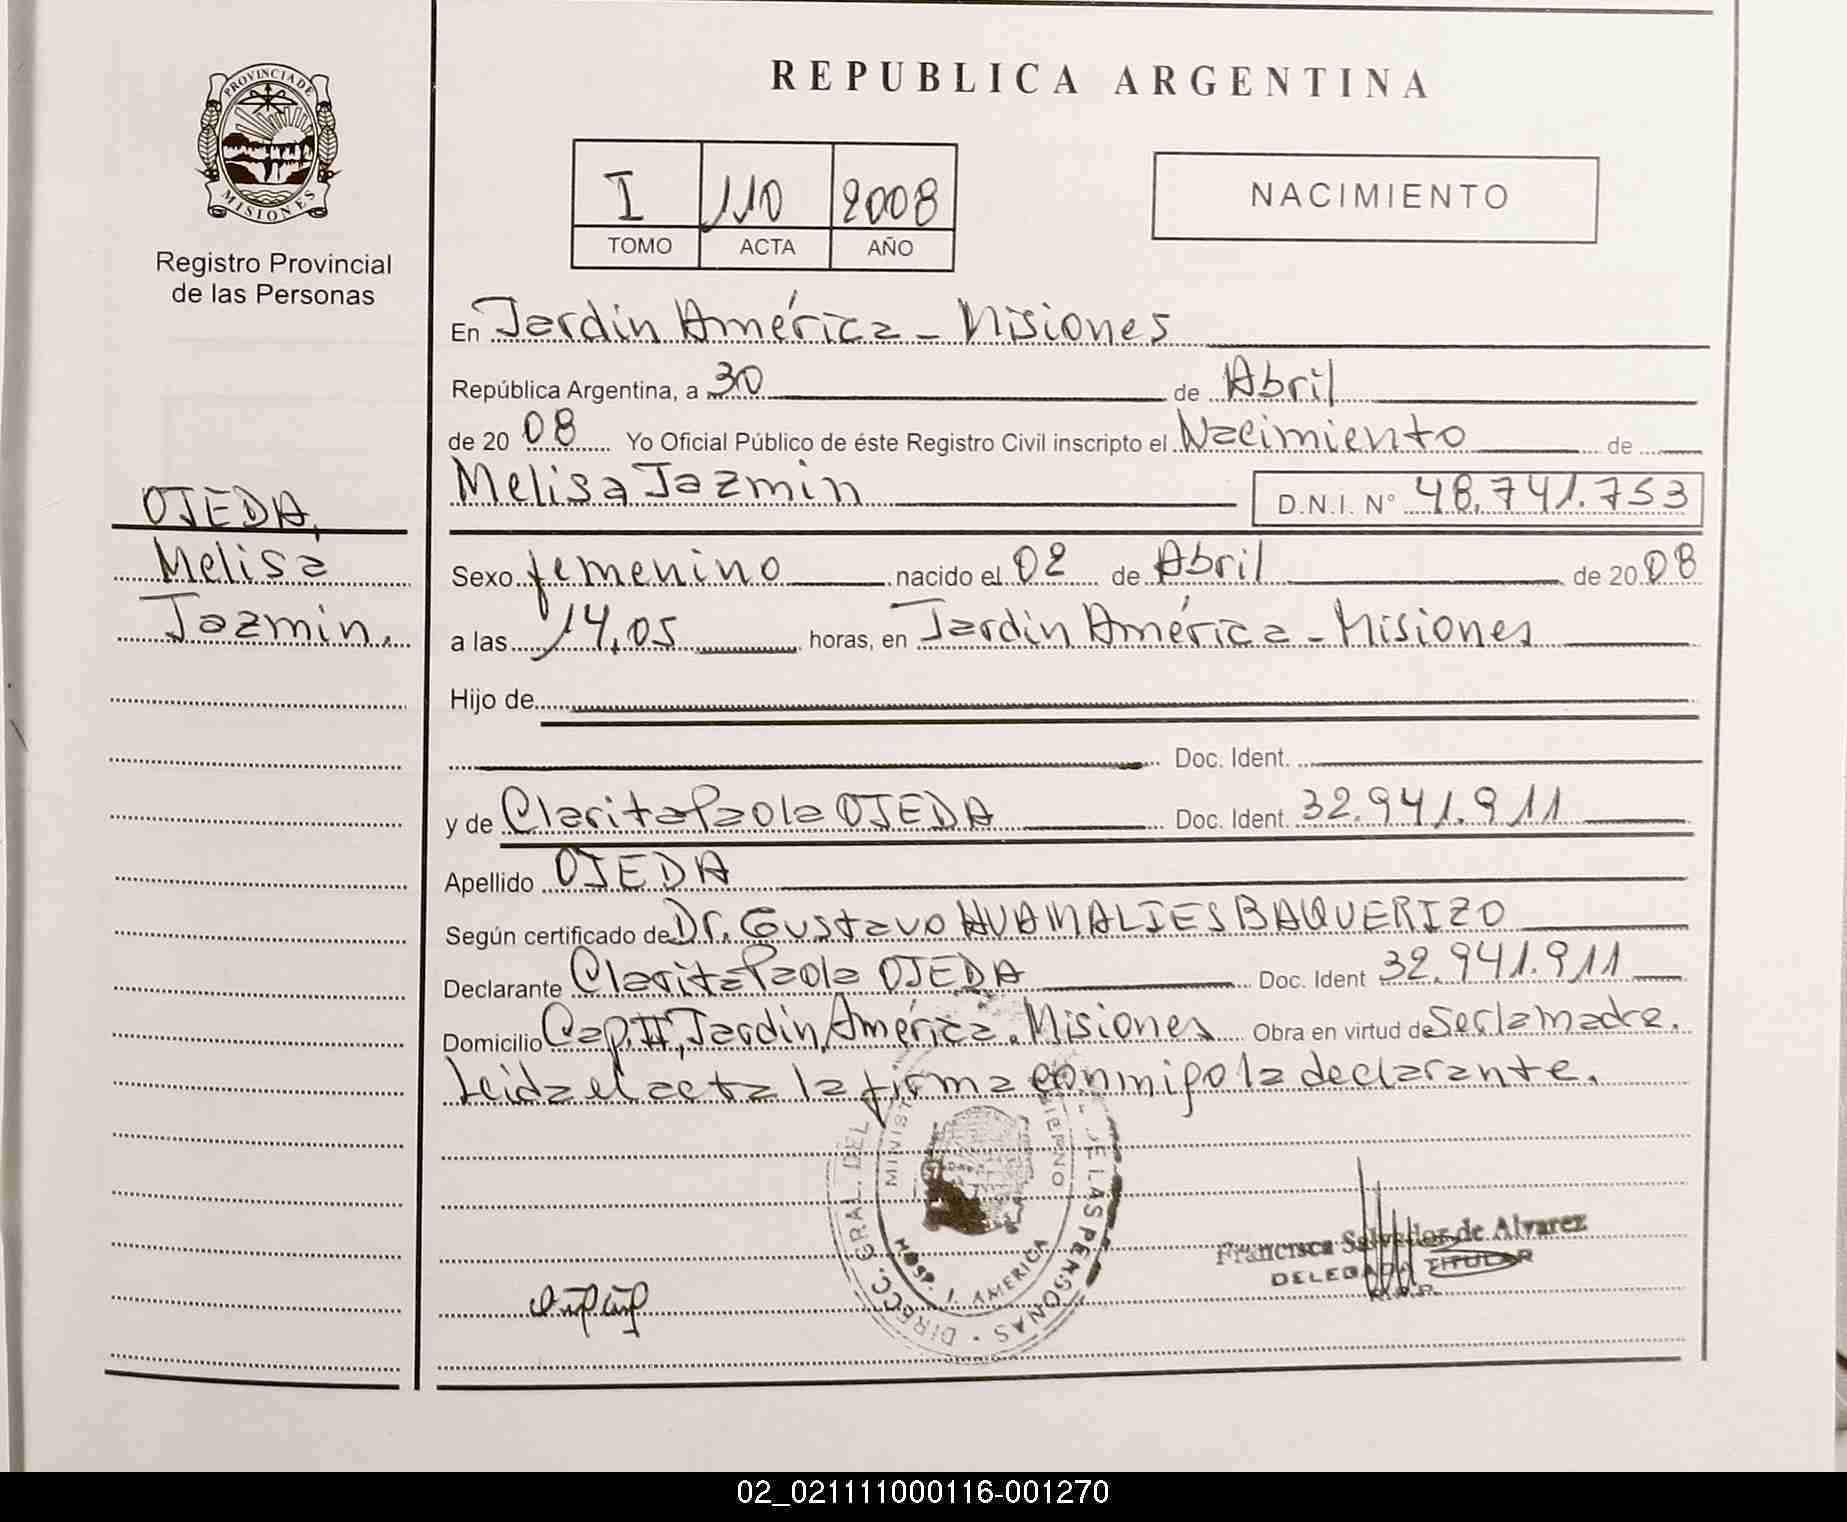 PROVINCIA DE
MISIONES
Registro Provincial
de las Personas
OJEDA,
Melisa
Jazmin.
REPUBLICA ARGENTINA
I 110 2008
TOMO ACTA AÑO
NACIMIENTO
En Jardín América - Misiones
República Argentina, a 30 de Abril
de 20 08 Yo Oficial Público de éste Registro Civil inscripto el Nacimiento de
Melisa Jazmin D.N.I. N° 48.741.753
Sexo femenino nacido el 02 de Abril de 20 08
a las 14,05 horas, en Jardín América - Misiones
Hijo de
Doc. Ident.
y de Clarita Paola OJEDA Doc. Ident. 32.941.911
Apellido OJEDA
Según certificado de Dr. Gustavo HUAMALIES BAQUERIZO
Declarante Clarita Paola OJEDA Doc. Ident 32.941.911
Domicilio Cap. II, Jardín América. Misiones Obra en virtud de Ser la madre.
Leida el acta la firma conmigo la declarante.
DIRECC. GRAL. DEL DE LAS PERSONAS
HOSP. J. AMERICA
Francisca Salvador de Alvarez
DELEGADA TITULAR
02_021111000116-001270